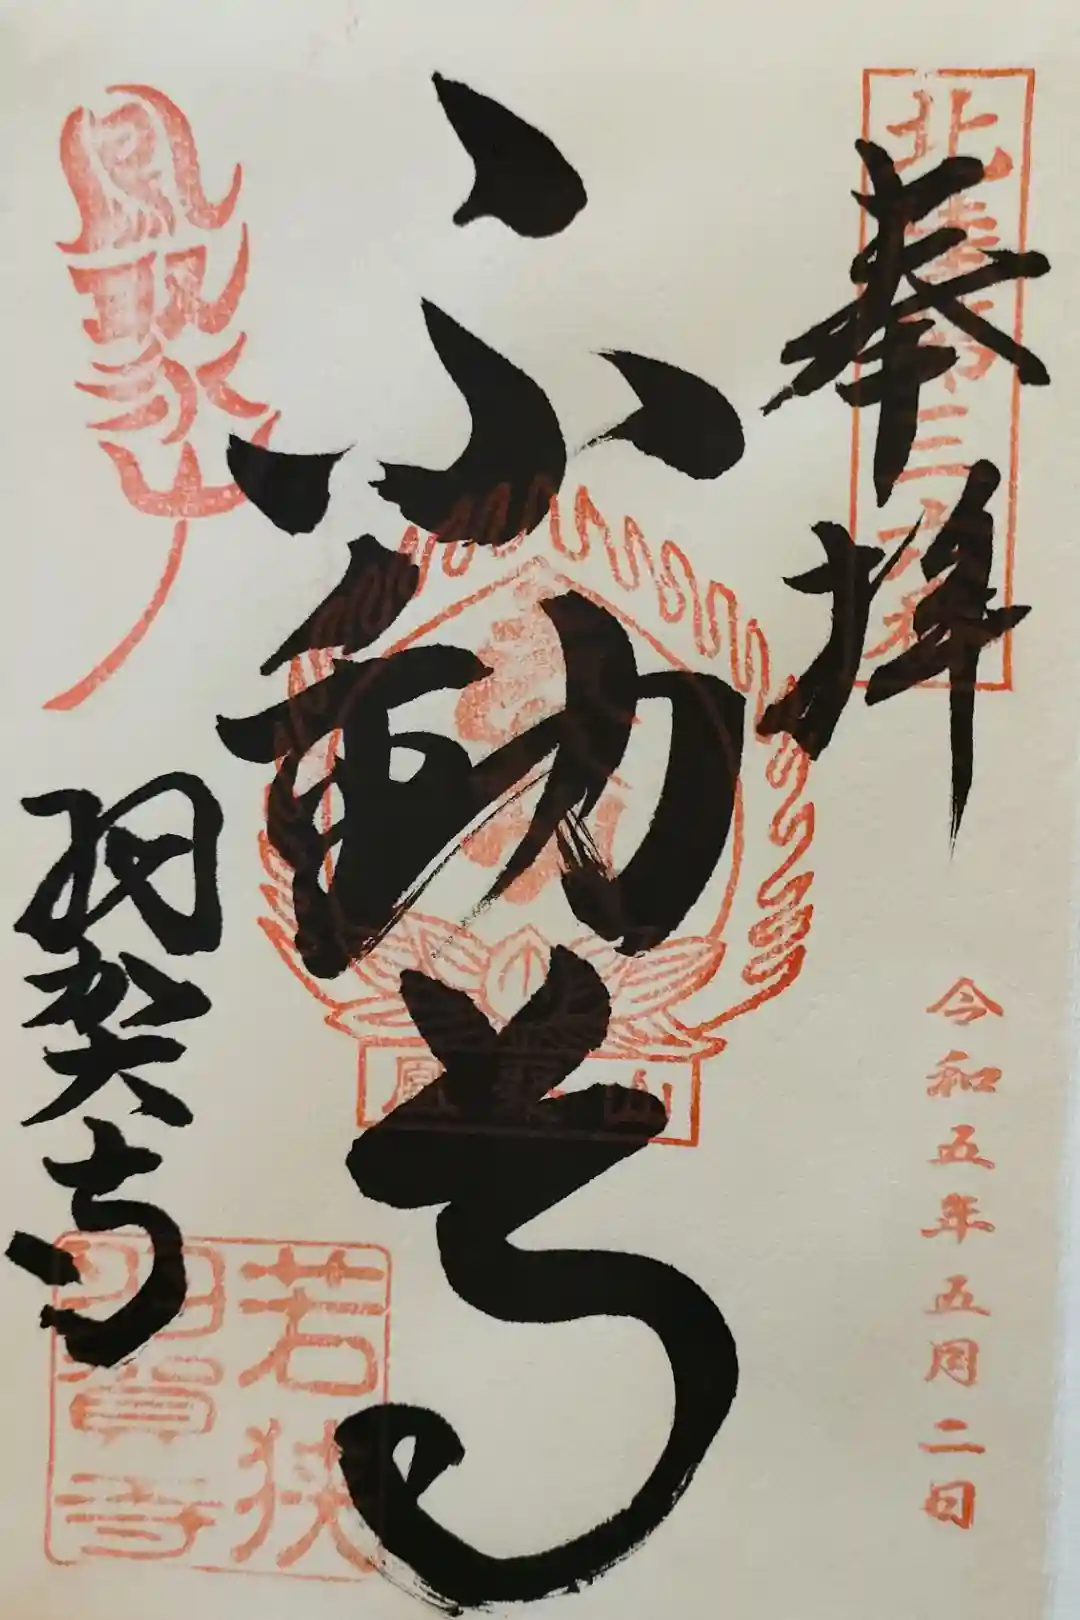 奉拝
令和五年五月二日
不動尊
鳳聚山
鳳聚山
羽賀寺
若狭
羽賀寺